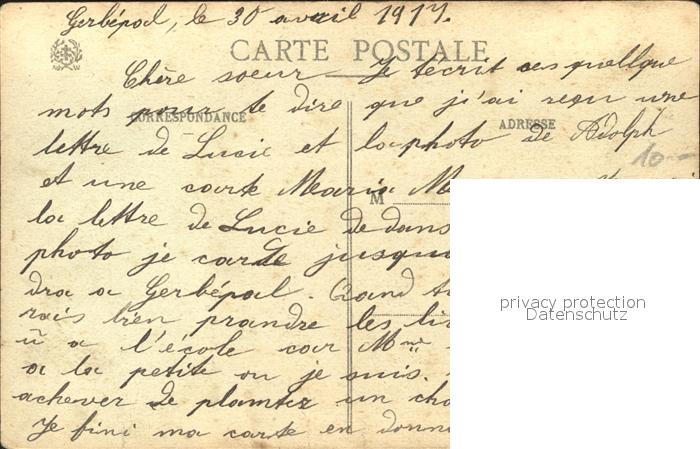 Gerbépal, le 30 avril 1917.
CARTE POSTALE
Chère soeur Je técrit ces quellque
mots pour te dire que j'ai reçu une
CORRESPONDANCE
ADRESSE
lettre de Lucie et la photo de Adolph
10.-
et une carte Maria
M
la lettre de Lucie de dans
photo je carde jusqu
dra a Gerbépal. Quand
rais bien prandre les
a l'école car Mme
a la petite ou je suis.
achever de plamter un
Je fini ma carte en donn
privacy protection
Datenschutz